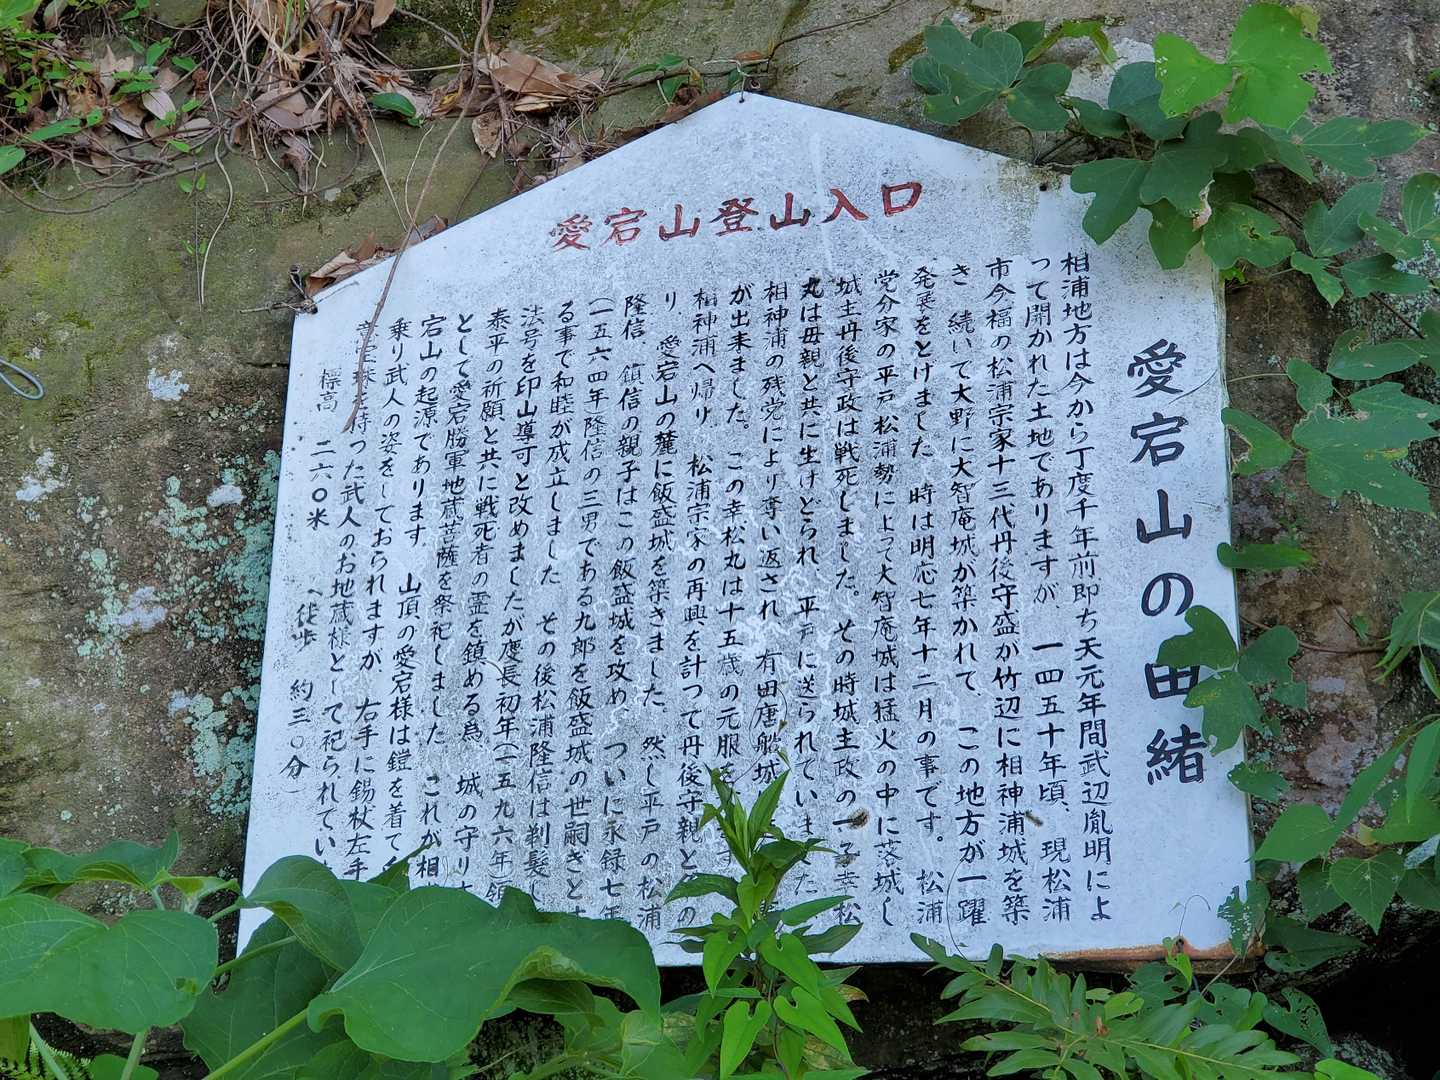 愛宕山登山入口
愛宕山の由緒
相浦地方は今から丁度千年前即ち天元年間武辺胤明によ
って開かれた土地でありますが、一四五十年頃、現松浦
市今福の松浦宗家十三代丹後守盛が竹辺に相神浦城を築
き 続いて大野に大智庵城が築かれて、この地方が一躍
発展をとけました 時は明応七年十二月の事です。松浦
党分家の平戸松浦勢によって大智庵城は猛火の中に落城し
城主丹後守政は戦死しました。その時城主政の一子幸松
丸は母親と共に生けどられ 平戸に送られていました
相神浦の残党により奪い返され 有田唐船城
が出来ました。この幸松丸は十五歳の元服を
相神浦へ帰り、松浦宗家の再興を計って丹後守親と
り、愛宕山の麓に飯盛城を築きました、然し平戸の松浦
隆信、鎮信の親子はこの飯盛城を攻め ついに永録七年
(一五六四年)隆信の三男である九郎を飯盛城の世嗣ぎと
る事で和睦が成立しました その後松浦隆信は剃髪し
法号を印山導可と改めましたが慶長初年(一五九六年)領
泰平の祈願と共に戦死者の霊を鎮める為、城の守り
として愛宕勝軍地蔵菩薩を祭祀しました これが相
宕山の起源であります。山頂の愛宕様は鎧を着て
乗り武人の姿をしておられますが、右手に錫杖左手
珠を持った武人のお地蔵様として祀られてい
標高 二六〇米 (徒歩 約三〇分)